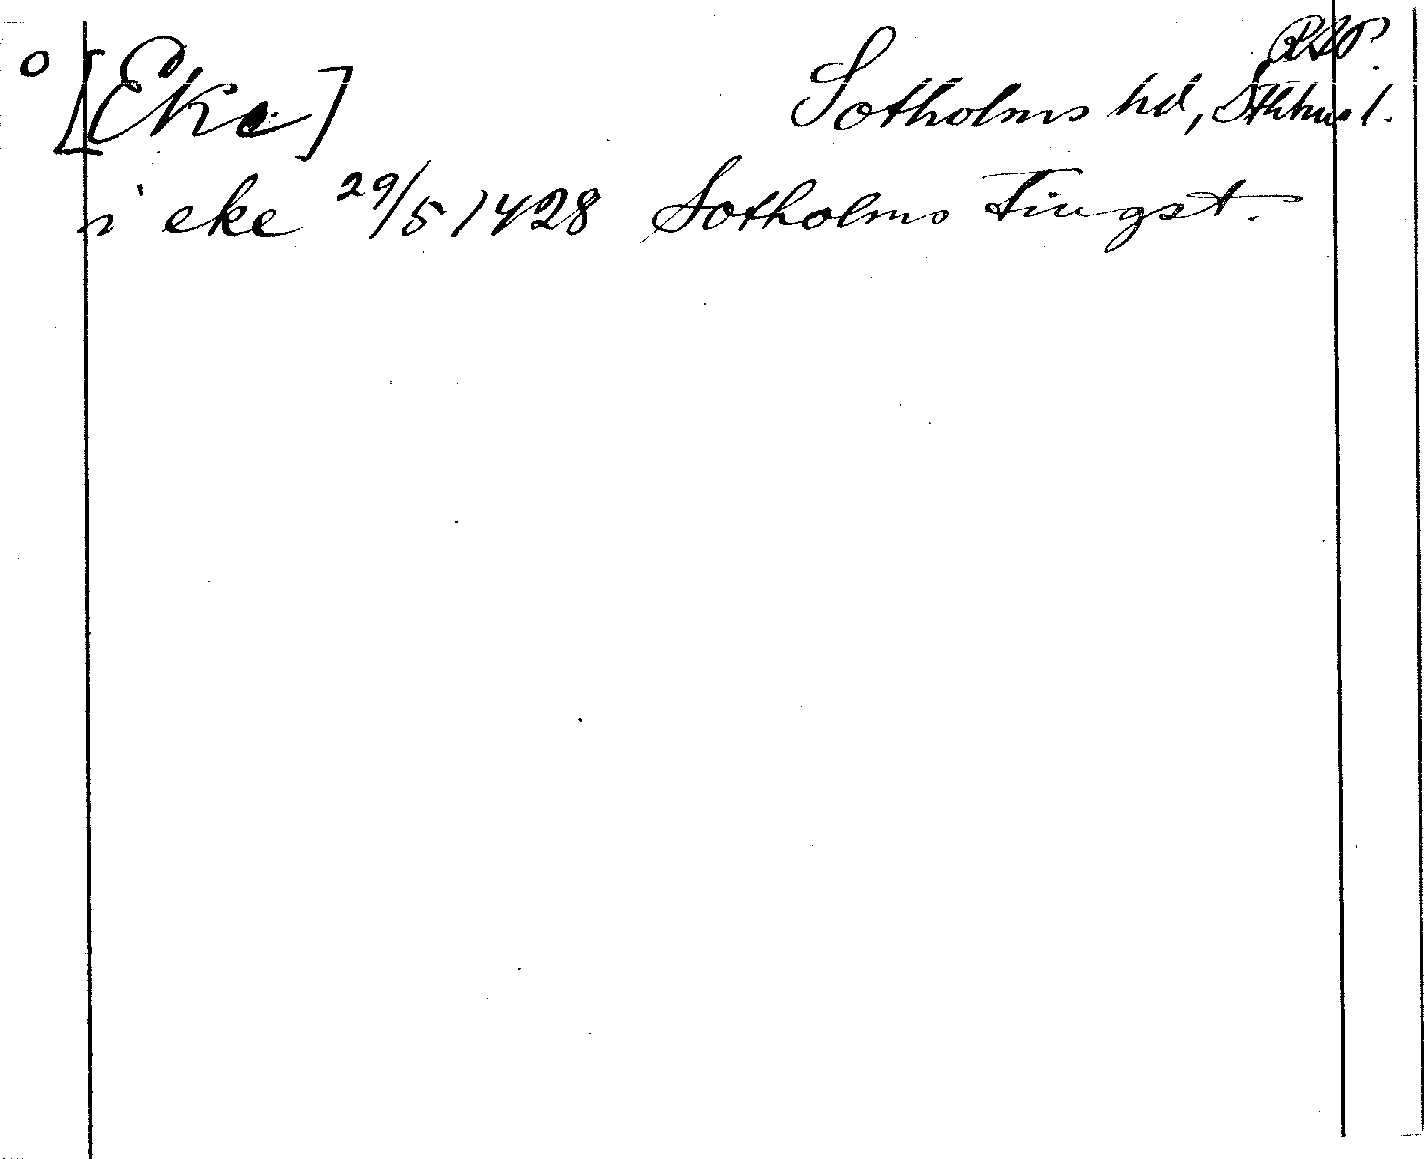 o [Eke]
Sotholms hd, Sthlms l.
i eke 29/5 1428 Sotholms Tingst.